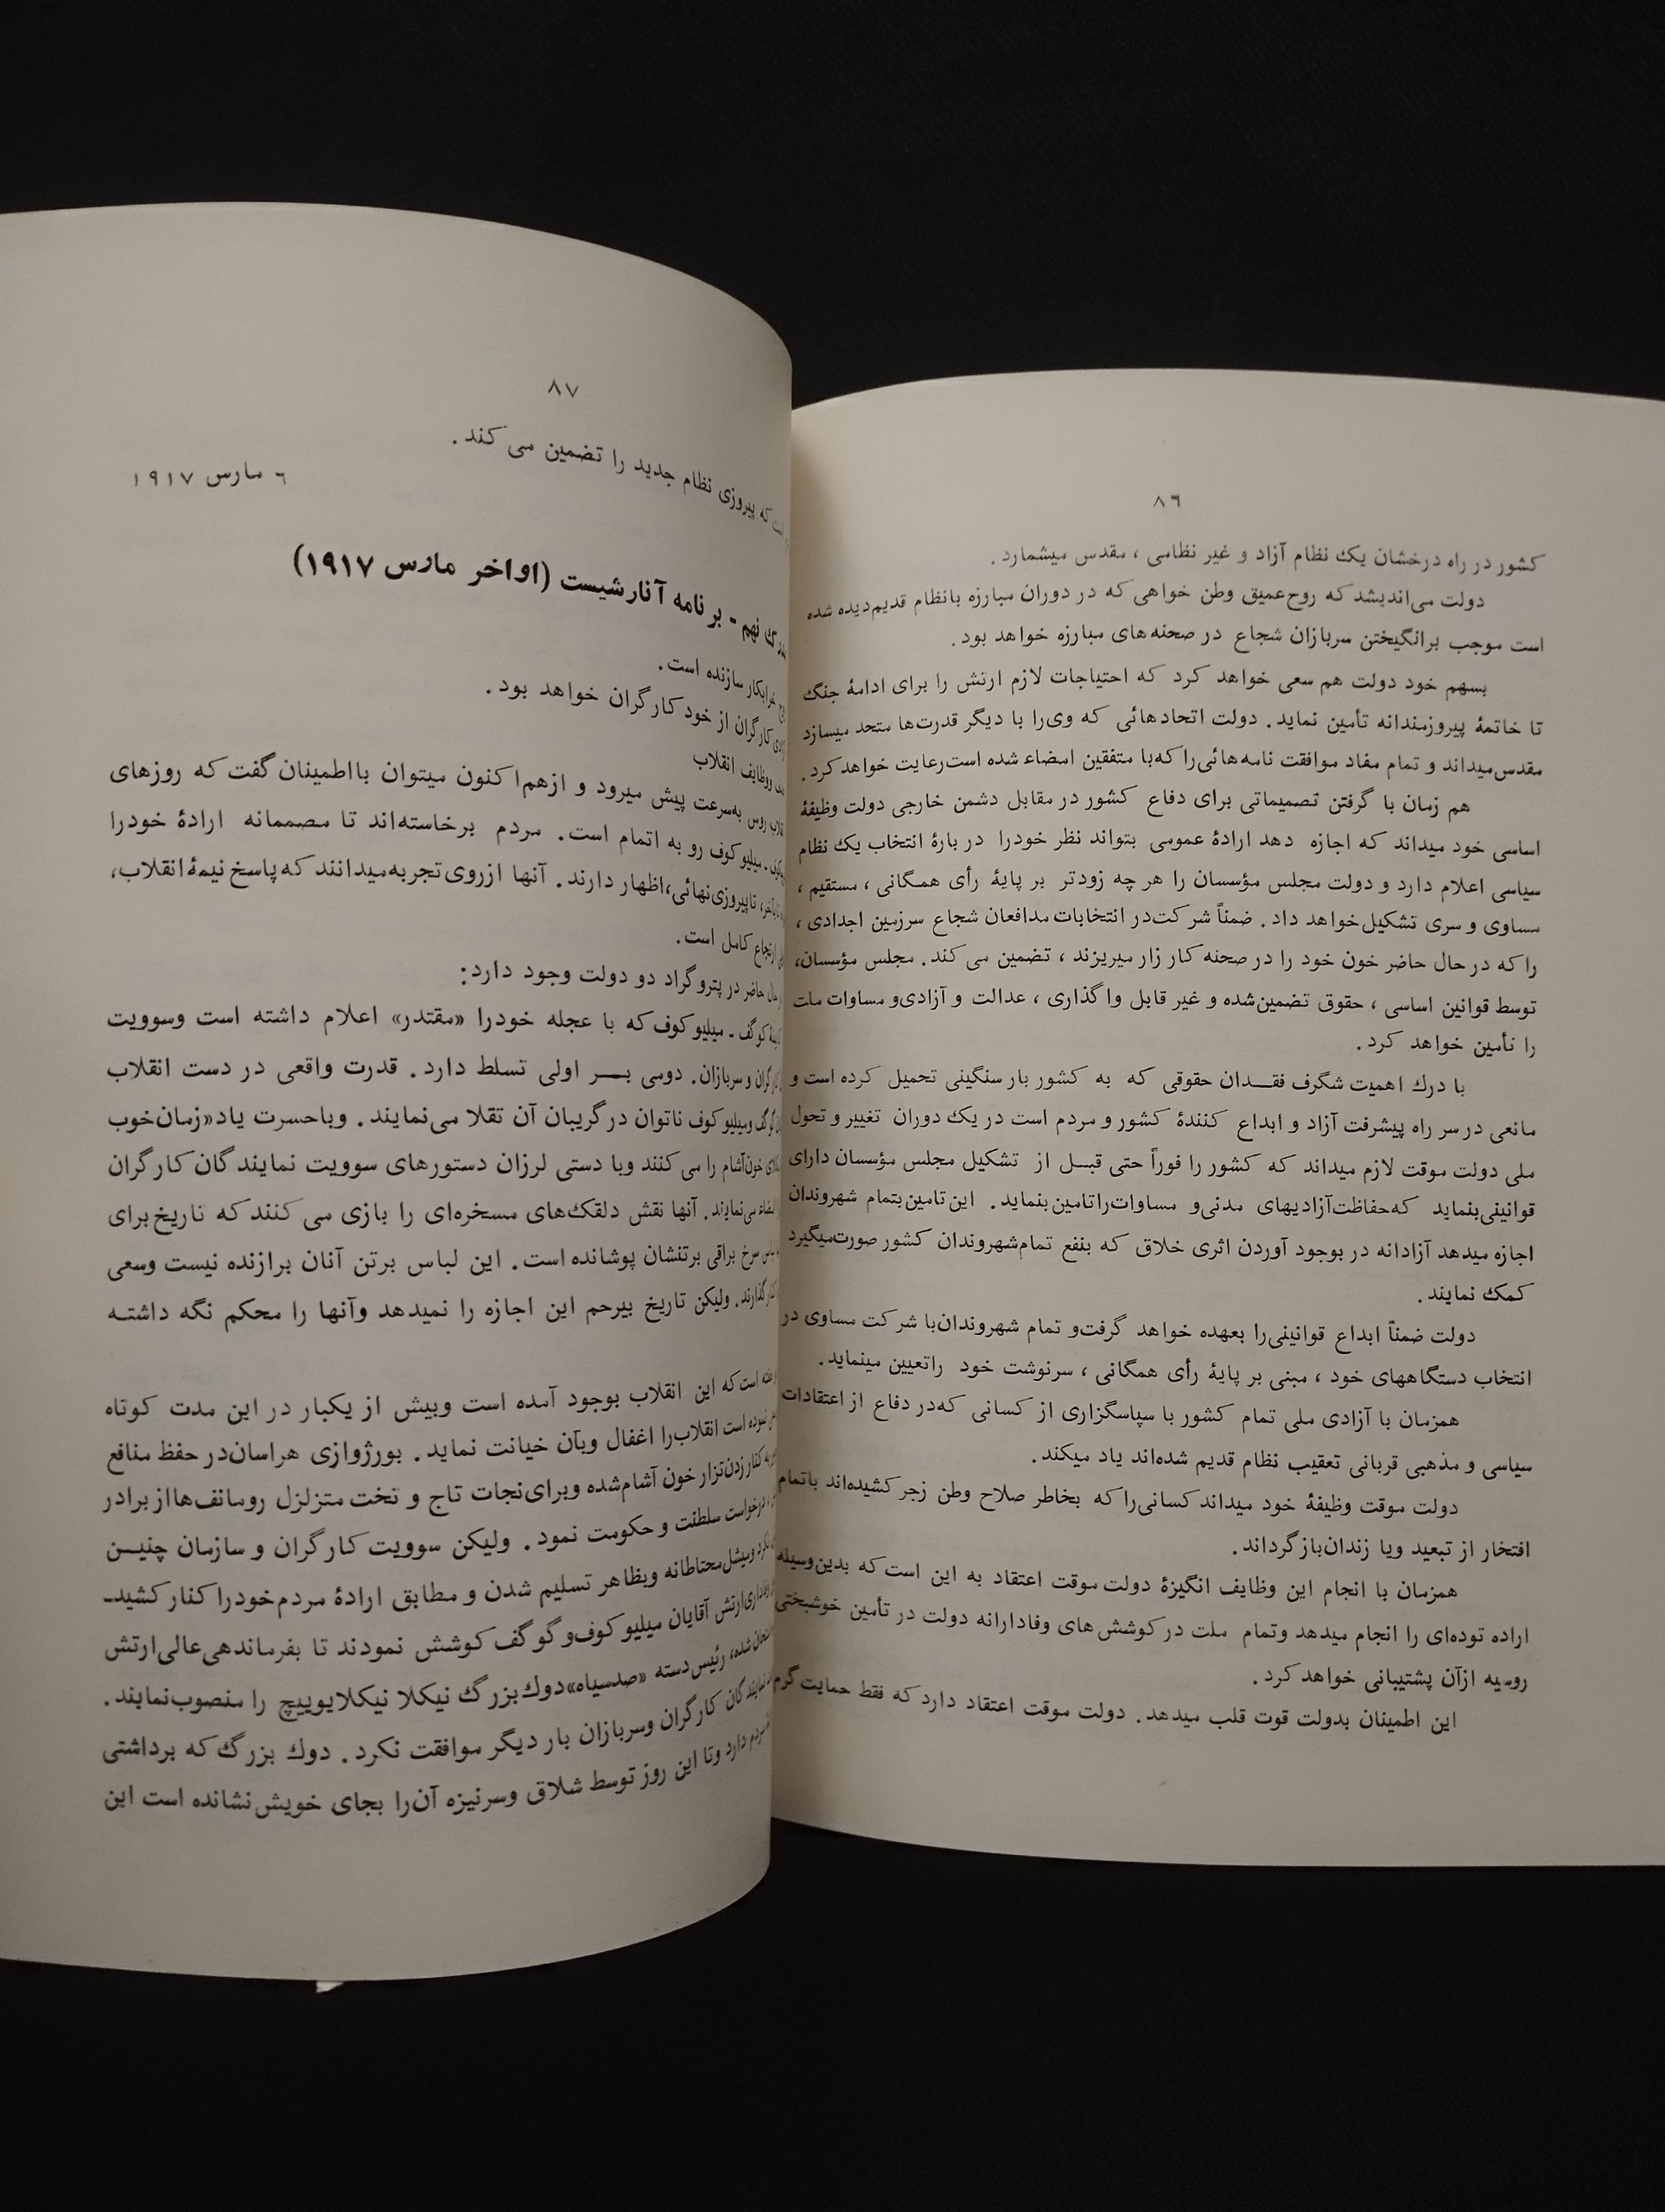 ٨٦
کشور در راه درخشان یك نظام آزاد و غیر نظامی ، مقدس میشمارد .
دولت می‌اندیشد که روح‌عمیق وطن خواهی که در دوران مبارزه بانظام قدیم‌دیده شده
است موجب برانگیختن سربازان شجاع در صحنه‌های مبارزه خواهد بود .
بسهم خود دولت هم سعی خواهد کرد که احتیاجات لازم ارتش را برای ادامهٔ جنگ
تا خاتمهٔ پیروزمندانه تأمین نماید . دولت اتحادهائی که وی‌را با دیگر قدرت‌ها متحد میسازد
مقدس‌میداند و تمام مفاد موافقت نامه‌هائی‌را که‌با متفقین امضاء شده است‌رعایت خواهدکرد .
هم زمان با گرفتن تصمیماتی برای دفاع کشور در مقابل دشمن خارجی دولت وظیفهٔ
اساسی خود میداند که اجازه دهد ارادهٔ عمومی بتواند نظر خودرا در بارهٔ انتخاب یك نظام
سیاسی اعلام دارد و دولت مجلس مؤسسان را هر چه زودتر بر پایهٔ رأی همگانی ، مستقیم ،
مساوی و سری تشکیل‌خواهد داد . ضمناً شرکت‌در انتخابات مدافعان شجاع سرزمین اجدادی ،
را که در حال حاضر خون خود را در صحنه کار زار میریزند ، تضمین می کند . مجلس مؤسسان،
توسط قوانین اساسی ، حقوق تضمین‌شده و غیر قابل واگذاری ، عدالت و آزادی‌و مساوات ملت
را تأمین خواهد کرد .
با درك اهمیت شگرف فقــدان حقوقی که به کشور بار سنگینی تحمیل کرده است و
مانعی در سر راه پیشرفت آزاد و ابداع کنندهٔ کشور و مردم است در یك دوران تغییر و تحول
ملی دولت موقت لازم میداند که کشور را فوراً حتی قبــل از تشکیل مجلس مؤسسان دارای
قوانینی‌بنماید که‌حفاظت‌آزادیهای مدنی‌و مساوات‌راتامین‌بنماید . این‌تامین‌بتمام شهروندان
اجازه میدهد آزادانه در بوجود آوردن اثری خلاق که بنفع تمام‌شهروندان کشور صورت‌میگیرد
کمك نمایند .
دولت ضمناً ابداع قوانینی‌را بعهده خواهد گرفت‌و تمام شهروندان‌با شرکت مساوی در
انتخاب دستگاههای خود ، مبنی بر پایهٔ رأی همگانی ، سرنوشت خود راتعیین مینماید.
همزمان با آزادی ملی تمام کشور با سپاسگزاری از کسانی که‌در دفاع از اعتقادات
سیاسی و مذهبی قربانی تعقیب نظام قدیم شده‌اند یاد میکند .
دولت موقت وظیفهٔ خود میداند کسانی‌را که بخاطر صلاح وطن زجر کشیده‌اند باتمام
افتخار از تبعید ویا زندان‌باز گرداند .
همزمان با انجام این وظایف انگیزهٔ دولت موقت اعتقاد به این است که بدین‌وسیله
اراده توده‌ای را انجام میدهد وتمام ملت در کوشش های وفادارانه دولت در تأمین خوشبختی
روسیه ازآن پشتیبانی خواهد کرد .
این اطمینان بدولت قوت قلب میدهد . دولت موقت اعتقاد دارد که فقط حمایت گرم
٨٧
که پیروزی نظام جدید را تضمین می کند .
٦ مارس ١٩١٧
نهم - برنامه آنارشیست (اواخر مارس ١٩١٧)
خرابکار سازنده است .
کارگران از خود کارگران خواهد بود .
ووظایف انقلاب
روس به‌سرعت پیش میرود و ازهم‌اکنون میتوان بااطمینان گفت که روزهای
میلیوکوف رو به اتمام است . مردم برخاسته‌اند تا مصممانه ارادهٔ خودرا
تاپیروزی‌نهائی،اظهار دارند . آنها ازروی‌تجربه‌میدانند که‌پاسخ نیمهٔ‌انقلاب،
ارتجاع کامل است .
حاضر در پتروگراد دو دولت وجود دارد:
گوگف - میلیوکوف که با عجله خودرا «مقتدر» اعلام داشته است وسوویت
کارگران و سربازان . دومی بــر اولی تسلط دارد . قدرت واقعی در دست انقلاب
گوگف ومیلیوکوف ناتوان در گریبان آن تقلا می‌نمایند . وباحسرت یاد«زمان‌خوب
خون‌آشام را می کنند وبا دستی لرزان دستورهای سوویت نمایندگان کارگران
امضاء می‌نمایند . آنها نقش دلقك‌های مسخره‌ای را بازی می کنند که تاریخ برای
سرخ براقی برتنشان پوشانده است . این لباس برتن آنان برازنده نیست وسعی
ولیکن تاریخ بیرحم این اجازه را نمیدهد وآنها را محکم نگه داشتـه
است که این انقلاب بوجود آمده است وبیش از یکبار در این مدت کوتاه
نموده است انقلاب‌را اغفال وبآن خیانت نماید . بورژوازی هراسان‌در حفظ منافع
کنار زدن‌تزار خون آشام‌شده وبرای‌نجات تاج و تخت متزلزل رومانف‌هااز برادر
درخواست سلطنت و حکومت نمود . ولیکن سوویت کارگران و سازمان چنیــن
ومیشل‌محتاطانه وبظاهر تسلیم شدن و مطابق ارادهٔ مردم‌خودرا کنارکشیدـ
وفاداری‌ارتش آقایان میلیوکوف‌و گوگف کوشش نمودند تا بفرماندهی‌عالی‌ارتش
رئیس‌دسته «صدسیاه»دوك‌بزرگ نیکلا نیکلایوییچ را منصوب‌نمایند .
نمایندگان کارگران وسربازان بار دیگر موافقت نکرد . دوك بزرگ که برداشتی
مردم دارد وتا این روز توسط شلاق وسرنیزه آن‌را بجای خویش‌نشانده است این